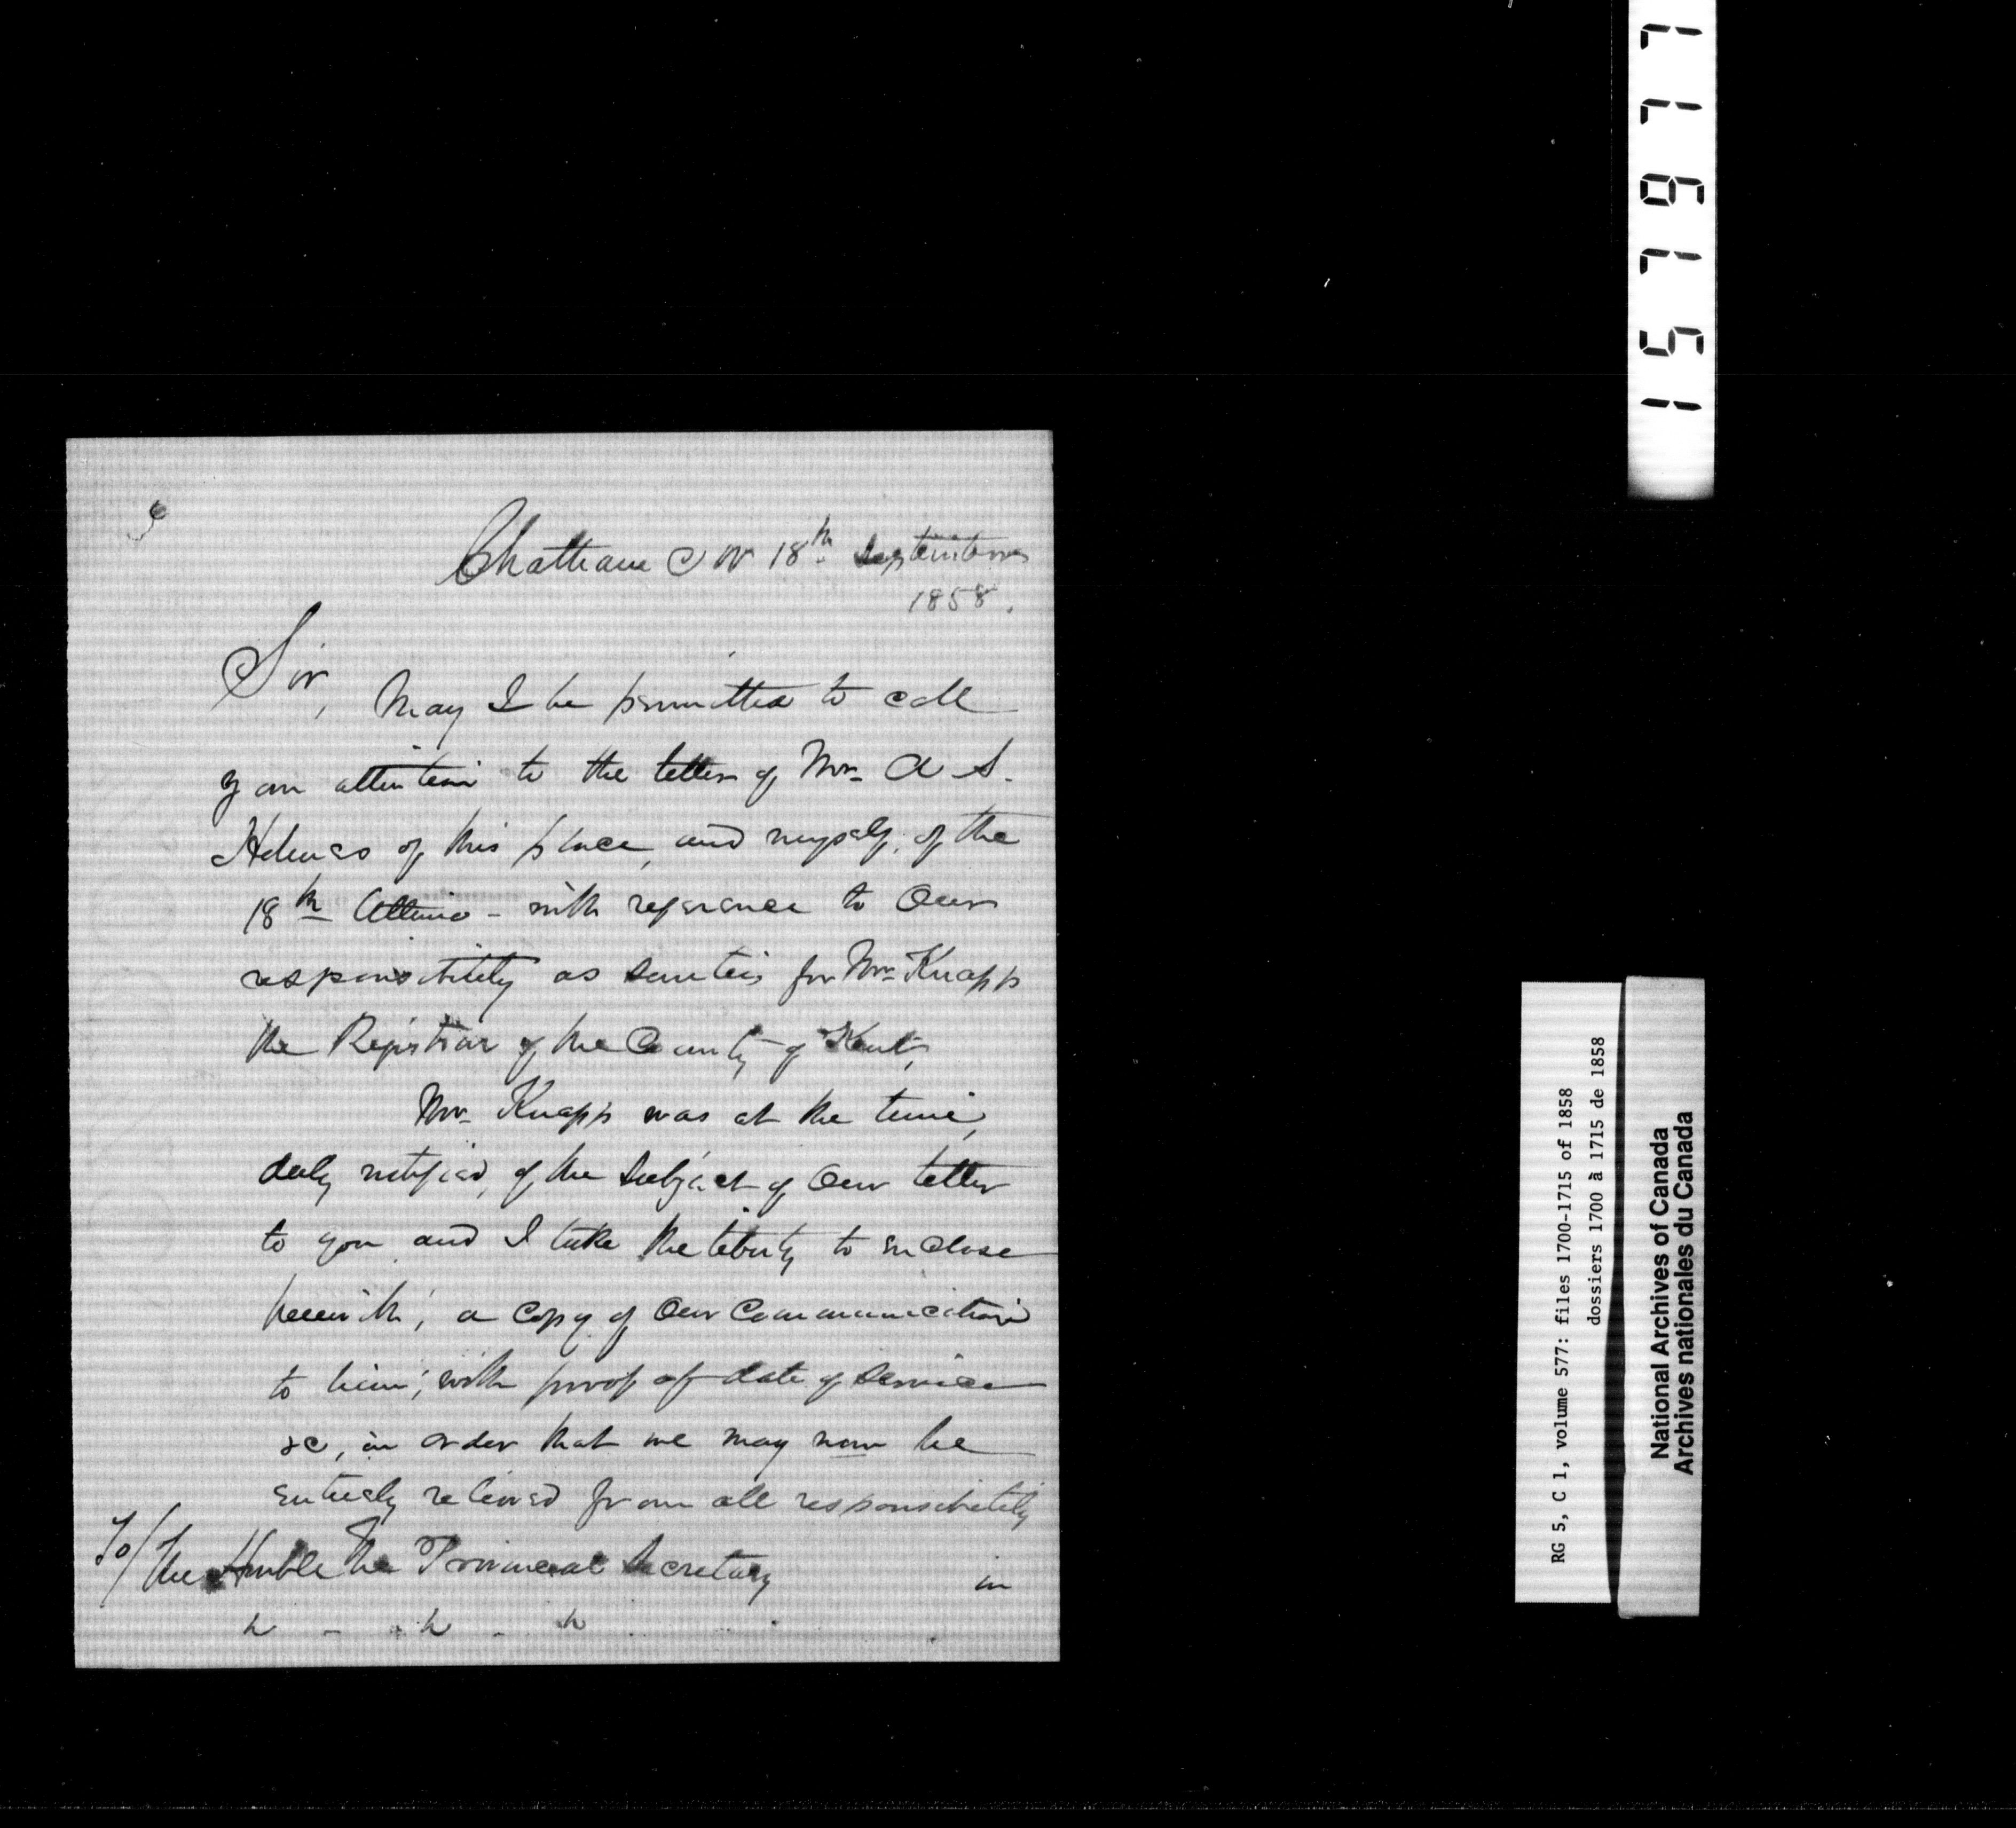 Chatham C W 18th September
1858.
Sir,
May I be permitted to call
your attention to the letter of Mr. A S.
Holmes of this place, and myself, of the
18th Ultimo - with reference to Our
responsibility as sureties for Mr. Knapp
the Registrar of the County of Kent,
Mr. Knapp was at the time,
duly notified, of the Subject of Our letter
to you and I take the liberty to enclose
herewith, a Copy of Our Communication
to him, with proof of date of service
&c, in order that we may now be
entirely relieved from all responsibility
To/ The Honble The Provincial Secretary
in
LONDON
1519171
RG 5, C 1, volume 577: files 1700-1715 of 1858
dossiers 1700 à 1715 de 1858
National Archives of Canada
Archives nationales du Canada